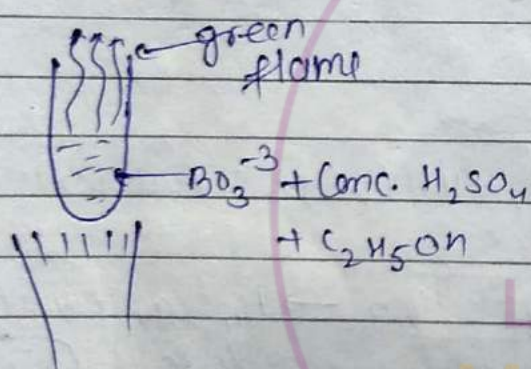 green
flame
BO₃⁻³ + Conc. H₂SO₄
+ C₂H₅OH